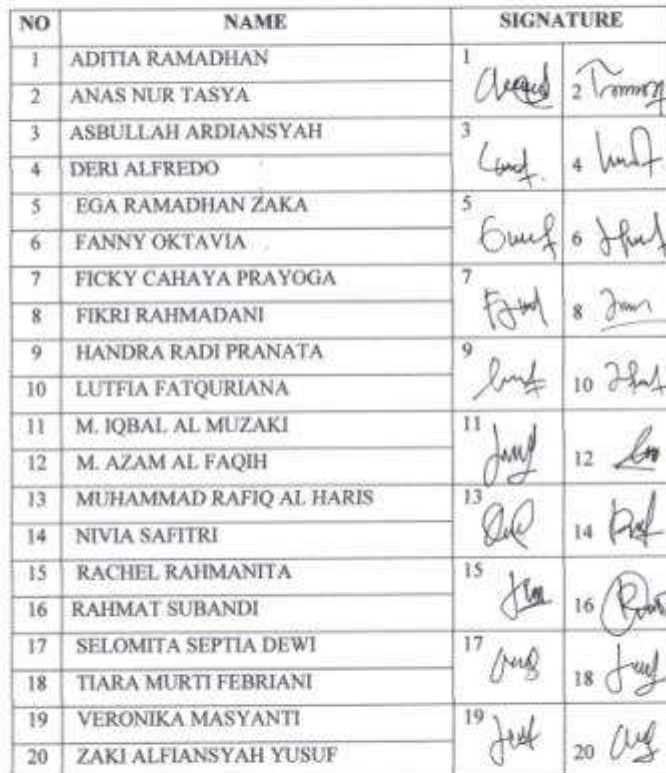 NO NAME SIGNATURE
1 ADITIA RAMADHAN 1
2 ANAS NUR TASYA 2
3 ASBULLAH ARDIANSYAH 3
4 DERI ALFREDO 4
5 EGA RAMADHAN ZAKA 5
6 FANNY OKTAVIA 6
7 FICKY CAHAYA PRAYOGA 7
8 FIKRI RAHMADANI 8
9 HANDRA RADI PRANATA 9
10 LUTFIA FATQURIANA 10
11 M. IQBAL AL MUZAKI 11
12 M. AZAM AL FAQIH 12
13 MUHAMMAD RAFIQ AL HARIS 13
14 NIVIA SAFITRI 14
15 RACHEL RAHMANITA 15
16 RAHMAT SUBANDI 16
17 SELOMITA SEPTIA DEWI 17
18 TIARA MURTI FEBRIANI 18
19 VERONIKA MASYANTI 19
20 ZAKI ALFIANSYAH YUSUF 20